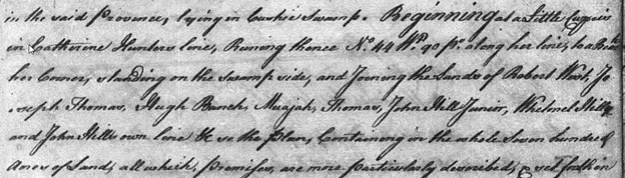 in the said Province, lying in Cashie Swamp. Beginning at a Little Cypris
in Catherine Hunters line, Runing thence No. 44 Wt. 90 po. along her line, to a
her Corner, standing on the Swamp side, and Joining the Lands of Robert West, Jo
seph Thomas, Hugh Banch, Thomas, John Hill Junior, Whelmel Hill
and John Hills own line &c se the Plan, Containing in the whole Seven hundred
Acres of Land, all which, Premises, are more particularly described, & set forth in